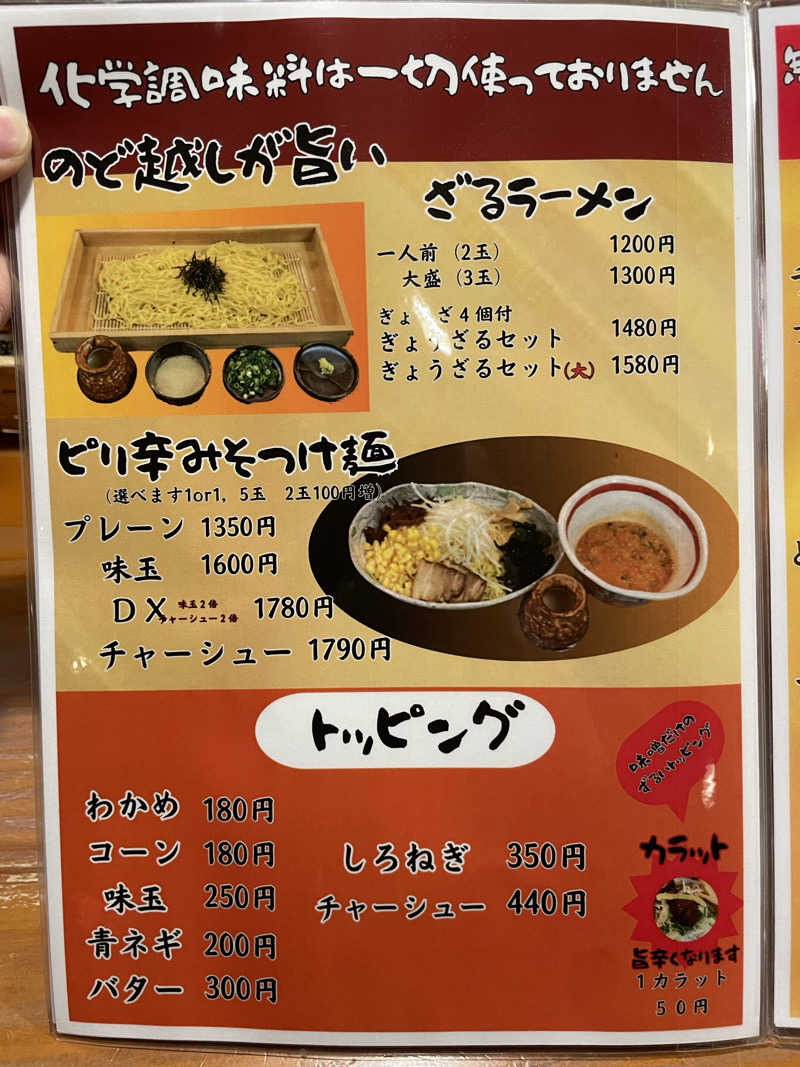 化学調味料は一切使っておりません
のど越しが旨い
ざるラーメン
一人前（2玉） 1200円
大盛（3玉） 1300円
ぎょうざ4個付
ぎょうざるセット 1480円
ぎょうざるセット(大) 1580円
ピリ辛みそつけ麺
（選べます1or1，5玉 2玉100円増）
プレーン 1350円
味玉 1600円
DX 味玉2倍 チャーシュー2倍 1780円
チャーシュー 1790円
トッピング
わかめ 180円
コーン 180円
味玉 250円
青ネギ 200円
バター 300円
しろねぎ 350円
チャーシュー 440円
味噌だけの
ずるいトッピング
カラット
旨辛くなります
1カラット
50円